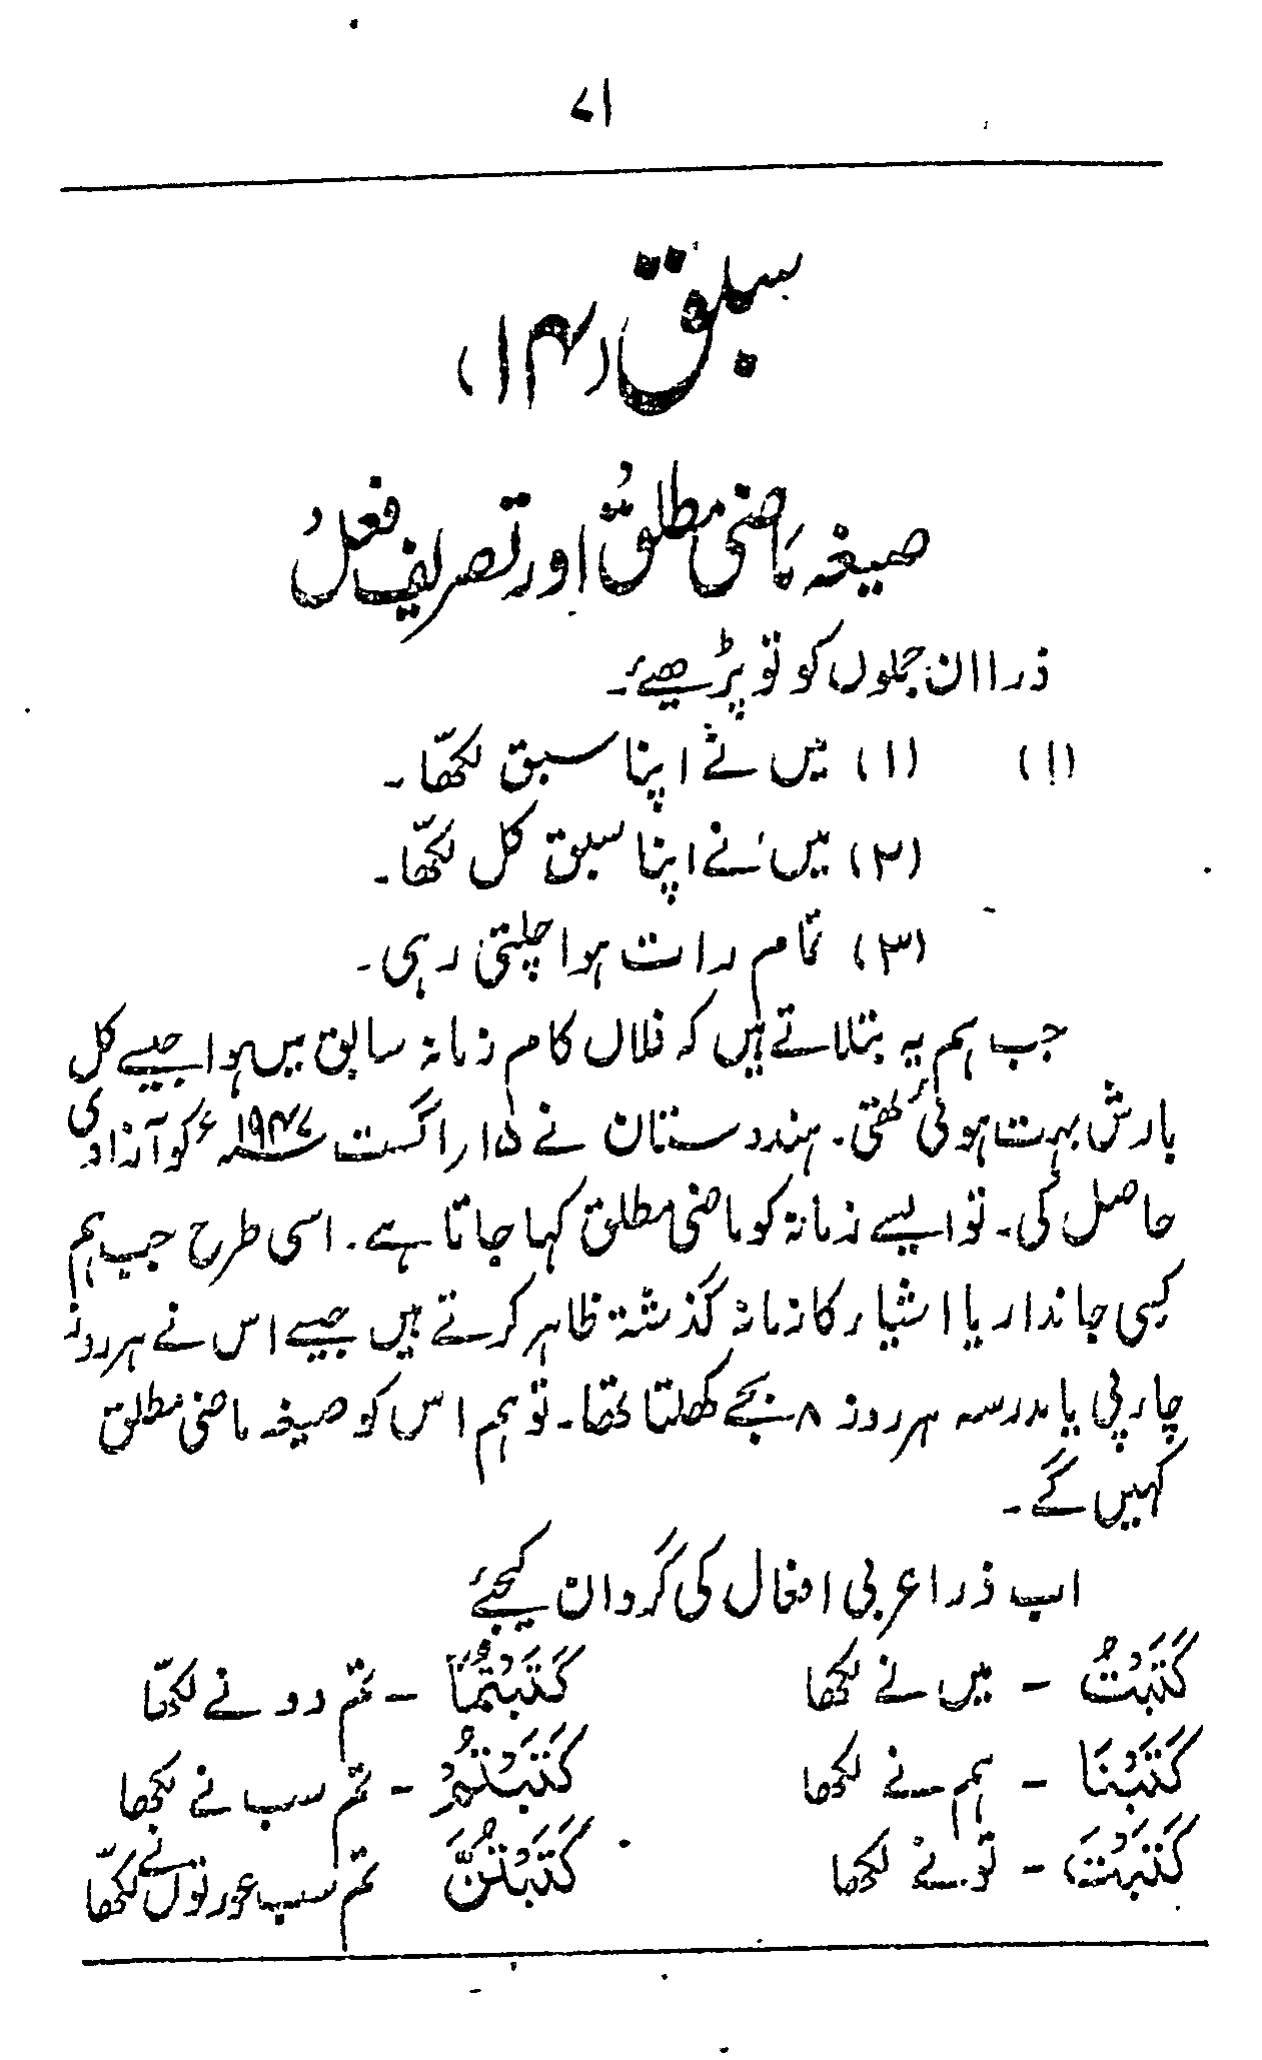 ۷۱
سبق (۱۴)
صیغہ ماضی مطلق اور تصریف فعل
ذرا ان جملوں کو تو پڑھیئے۔
(ا) (۱) میں نے اپنا سبق لکھّا۔
(۲) میں نے اپنا سبق کل لکھّا۔
(۳) تمام رات ہوا چلتی رہی۔
جب ہم یہ بتلاتے ہیں کہ فلاں کام زمانہ سابق میں ہوا جیسے کل
بارش بہت ہوئی تھی۔ ہندوستان نے ۱۵ر اگست ۱۹۴۷ء کو آزادی
حاصل کی۔ تو ایسے زمانہ کو ماضی مطلق کہا جاتا ہے۔ اسی طرح جب ہم
کسی جاندار یا اشیار کا زمانہ گذشتہ ظاہر کرتے ہیں جیسے اس نے ہر روز
چار پی یا مدرسہ ہر روز ۸ بجے کھلتا تھا۔ تو ہم اس کو صیغہ ماضی مطلق
کہیں گے۔
اب ذرا عربی افعال کی گردان کیجئے
کَتَبْتُ - میں نے لکھا کَتَبْتُمَا - تم دو نے لکھّا
کَتَبْنَا - ہم نے لکھا کَتَبْتُمْ - تم سب نے لکھا
کَتَبْتَ - تو نے لکھا کَتَبْتُنَّ تم سب عورتوں نے لکھّا